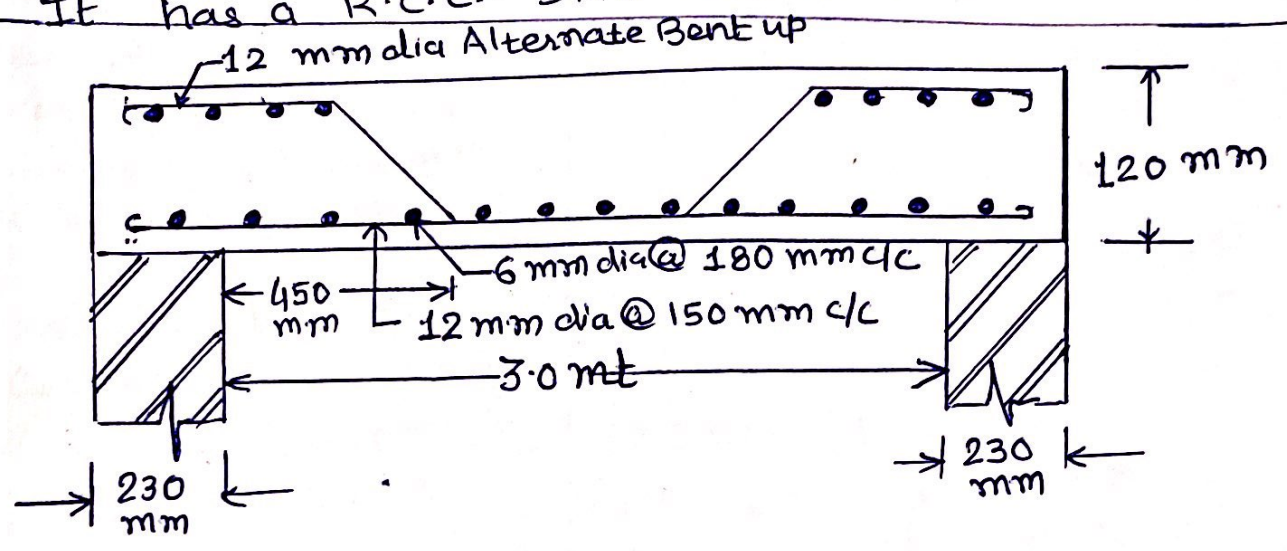 It has a R.C.C.
12 mm dia Alternate Bent up
120 mm
6 mm dia @ 180 mm c/c
450
mm
12 mm dia @ 150 mm c/c
3.0 mt
230
mm
230
mm